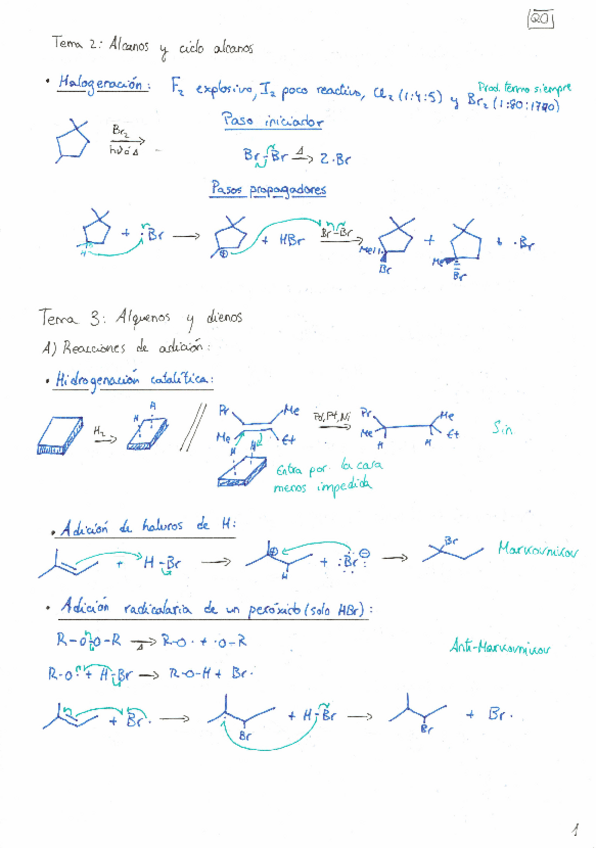 QO
Tema 2: Alcanos y ciclo alcanos
• Halogeneración: F2 explosivo, I2 poco reactivo, Cl2 (1:4:5) y Br2 (1:80:1700)
Prod. térmo siempre
Paso iniciador
Br2
hν ó Δ
Br-Br Δ→ 2·Br
Pasos propagadores
H + :Br → + HBr Br-Br → Me Br + Me Br + ·Br
Tema 3: Alquenos y dienos
A) Reacciones de adición:
• Hidrogenación catalítica:
H2 → H H // Pr Me Pd, Pt, Ni → Pr Me
Me Et Me Et Sin
H H H H
Entra por la cara
menos impedida
• Adición de haluros de H:
+ H-Br → H + :Br: ⊖ → Br Markovnikov
• Adición radicalaria de un peróxido (solo HBr):
R-O-O-R Δ→ R-O· + ·O-R
Anti-Markovnikov
R-O· + H-Br → R-O-H + Br·
+ Br· → Br + H-Br → Br + Br·
1